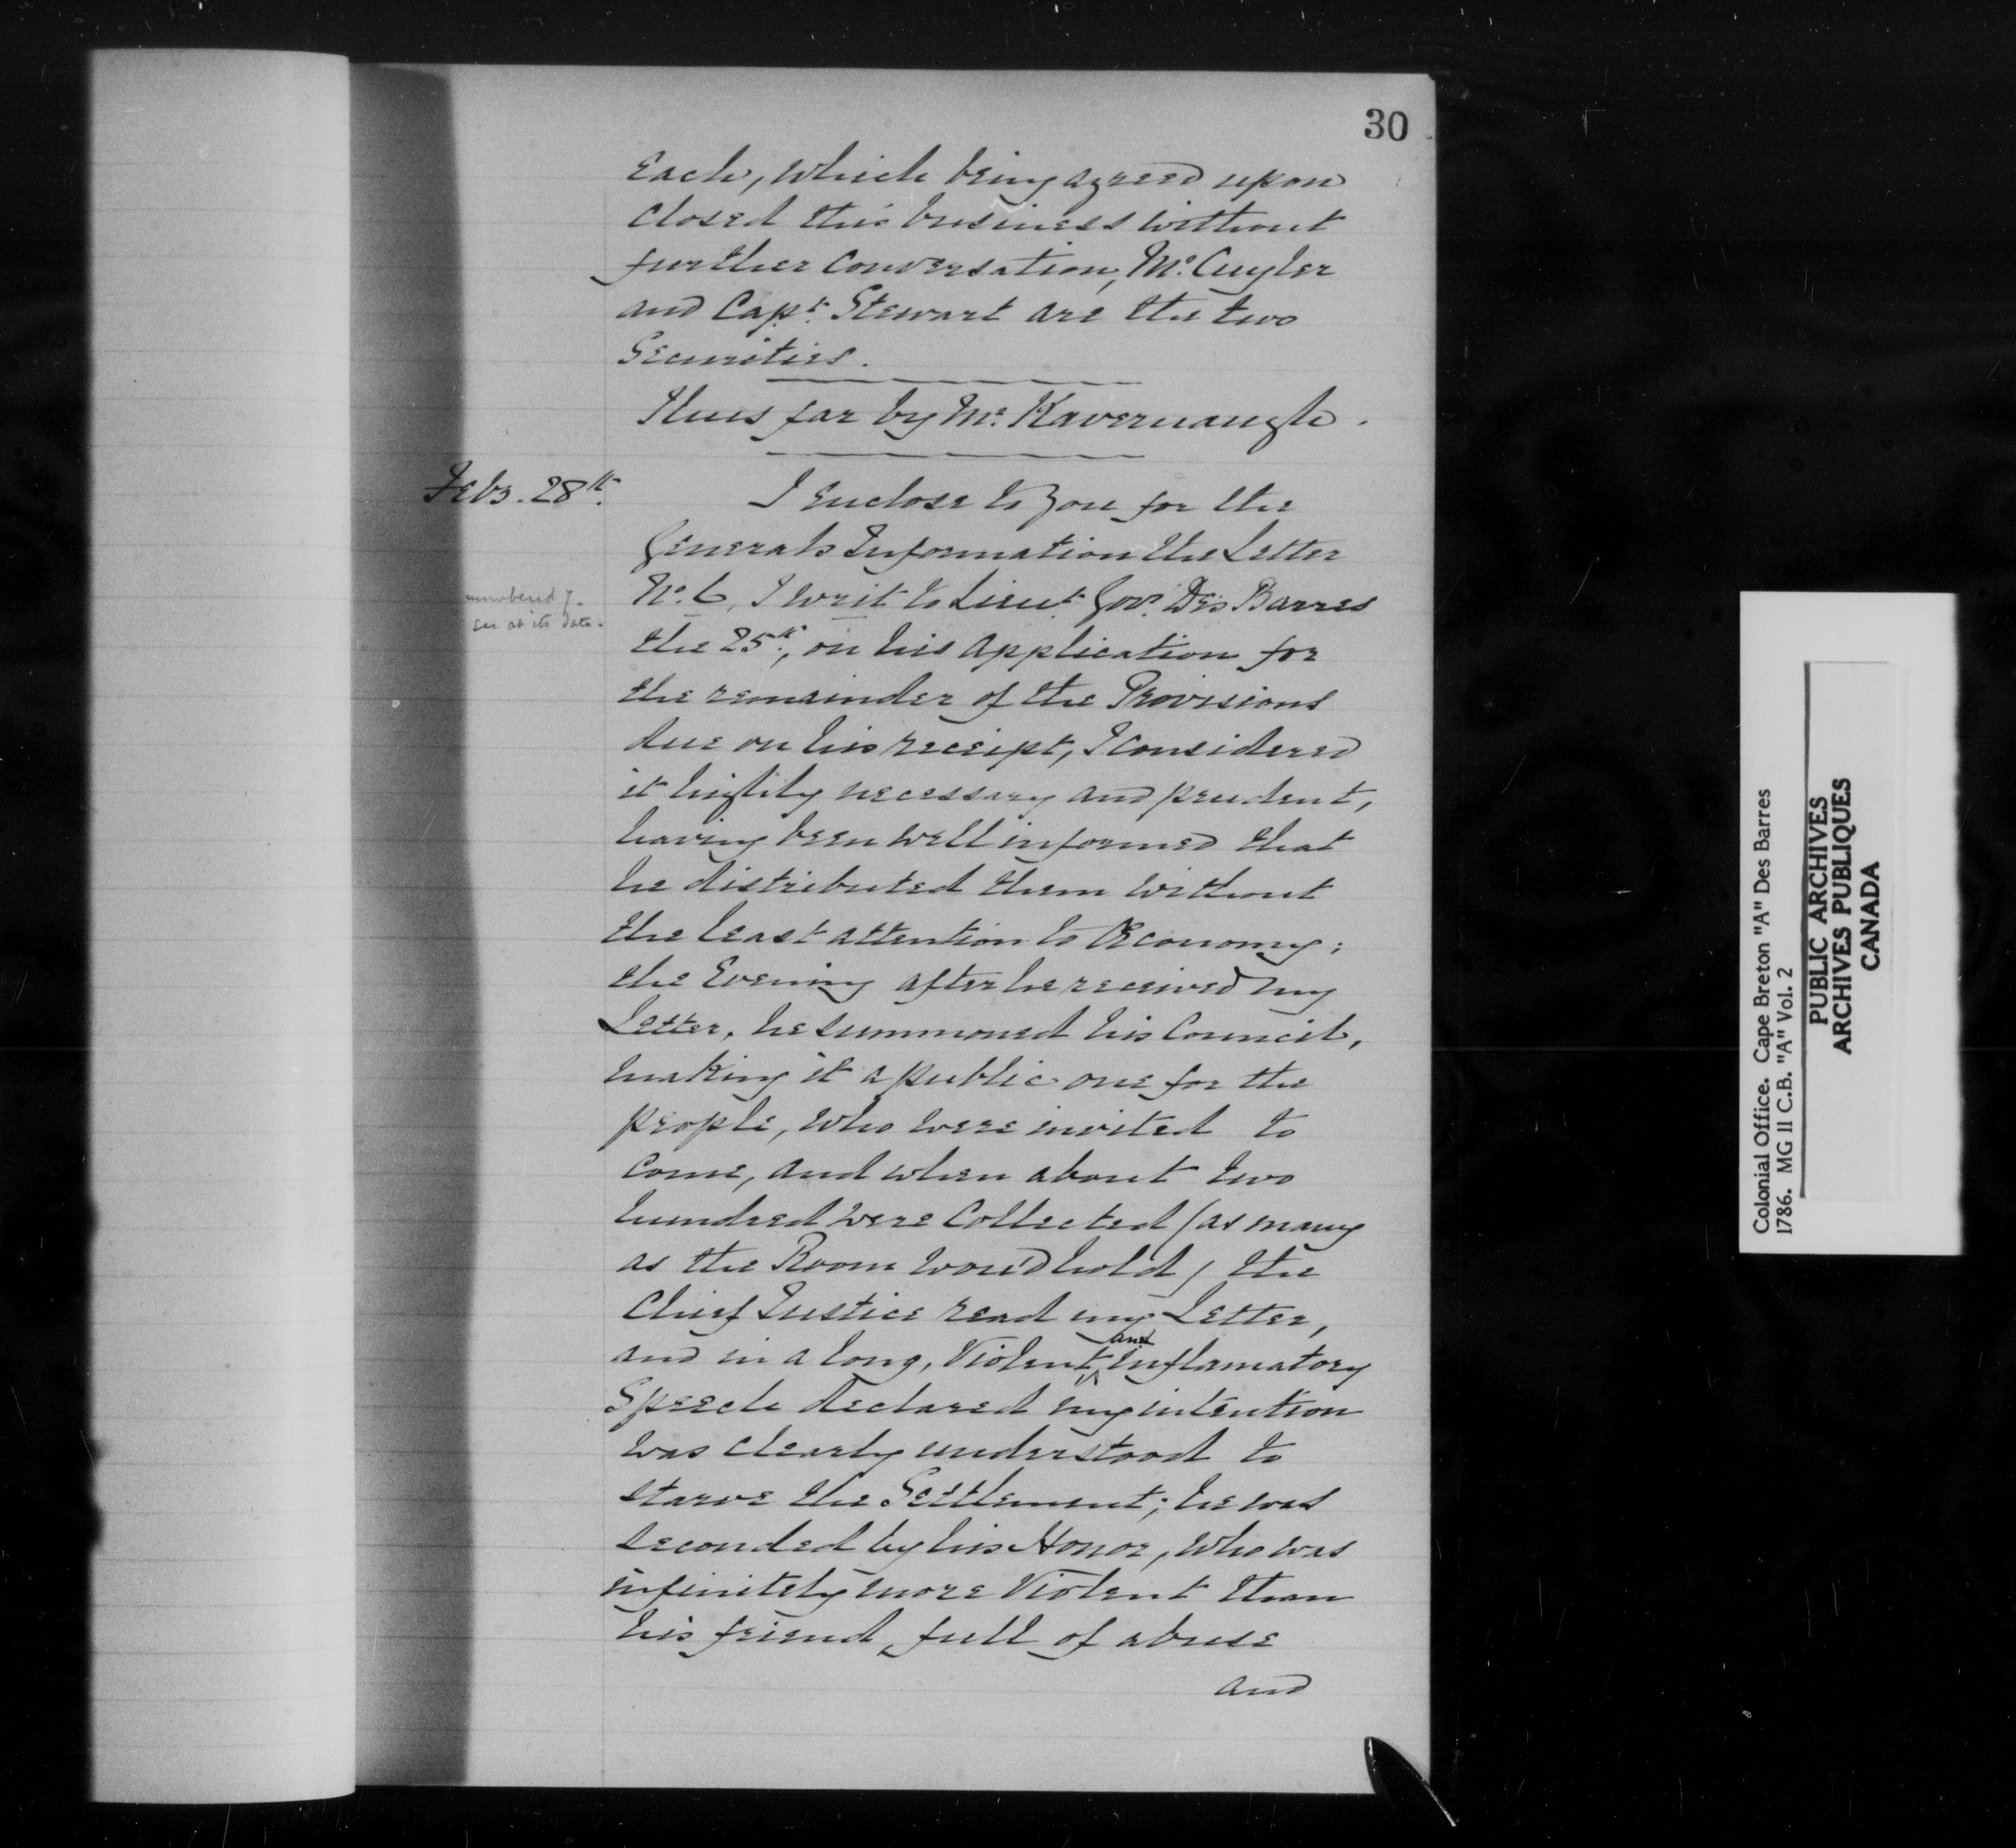 30
Each, which being agreed upon
closed this business without
further Conversation, Mr. Cuyler
and Capt. Stewart are the two
Securities.
Thus far by Mr. Kavernaugh.
Feby. 28th.
I enclose to You for the
Generals Information the Letter
numbered 7.
see at its date.
No. 6, I writ to Lieut. Govr. Des Barres
the 25th, on his Application for
the remainder of the Provisions
due on his receipt, I Considered
it highly necessary and prudent,
having been well informed that
he distributed them without
the least attention to Œconomy;
the Evening after he received my
Letter, he summoned his Council,
making it a public one for the
people, who were invited to
Come, and when about two
hundred were Collected (as many
as the Room wou'd hold) the
Chief Justice read my Letter,
and in a long, Violent and inflamatory
Speech declared my intention
was clearly understood to
starve the Settlement; he was
seconded by his Honor, who was
infinitely more Violent than
his friend, full of abuse
and
Colonial Office. Cape Breton "A" Des Barres
1786. MG 11 C.B. "A" Vol. 2
PUBLIC ARCHIVES
ARCHIVES PUBLIQUES
CANADA